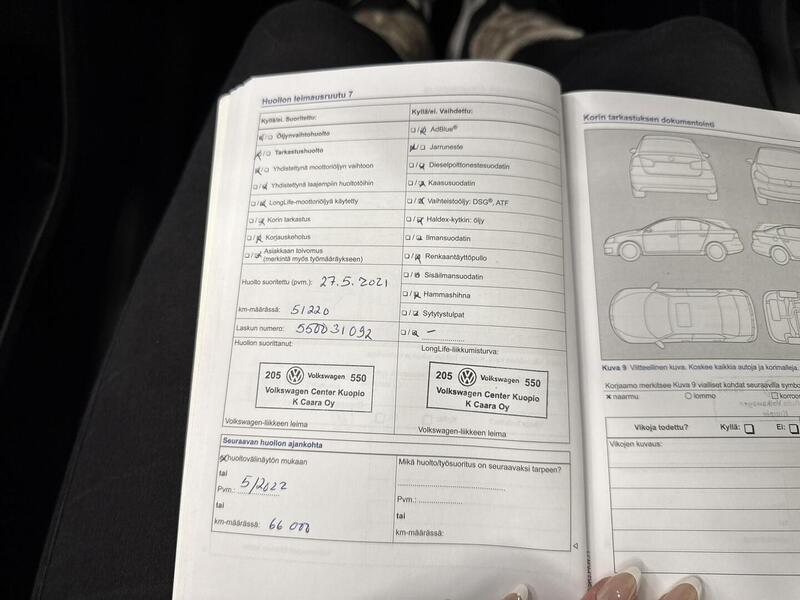 Huollon leimausruutu 7
Kyllä/ei. Suoritettu:
☒/☐ Öljynvaihtohuolto
☒/☐ Tarkastushuolto
☒/☐ Yhdistettynä moottoriöljyn vaihtoon
☐/☒ Yhdistettynä laajempiin huoltotöihin
☐/☒ LongLife-moottoriöljyä käytetty
☐/☒ Korin tarkastus
☐/☒ Korjauskehotus
☐/☒ Asiakkaan toivomus
(merkintä myös työmääräykseen)
Huolto suoritettu (pvm.): 27.5.2021
km-määrässä: 51220
Laskun numero: 550031092
Huollon suorittanut:
205 Volkswagen 550
Volkswagen Center Kuopio
K Caara Oy
Volkswagen-liikkeen leima
Kyllä/ei. Vaihdettu:
☐/☒ AdBlue®
☒/☐ Jarruneste
☐/☒ Dieselpolttonestesuodatin
☐/☒ Kaasusuodatin
☐/☒ Vaihteistoöljy: DSG®, ATF
☐/☒ Haldex-kytkin: öljy
☐/☒ Ilmansuodatin
☐/☒ Renkaantäyttöpullo
☐/☒ Sisäilmansuodatin
☐/☒ Hammashihna
☐/☒ Sytytystulpat
☐/☒ –
LongLife-liikkumisturva:
205 Volkswagen 550
Volkswagen Center Kuopio
K Caara Oy
Volkswagen-liikkeen leima
Seuraavan huollon ajankohta
☒ huoltovälinäytön mukaan
tai
Pvm.: 5/2022
tai
km-määrässä: 66 000
Mikä huolto/työsuoritus on seuraavaksi tarpeen?
Pvm.:
tai
km-määrässä:
Korin tarkastuksen dokumentointi
Kuva 9 Viitteellinen kuva. Koskee kaikkia autoja ja korimalleja.
Korjaamo merkitsee Kuva 9 vialliset kohdat seuraavilla
× naarmu ○ lommo ☐
Vikoja todettu? Kyllä: ☐ Ei: ☐
Vikojen kuvaus: